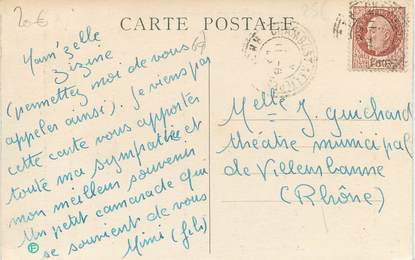 20€
CARTE POSTALE
Mam'zelle
Zizine
(permettez moi de vous
appeler ainsi). Je viens par
cette carte vous apporter
toute ma sympathie et
mon meilleur souvenir
Un petit camarade qui
se souvient de vous
Mimi (fils)
Melle J. Guichard
théâtre municipal
de Villeurbanne
(Rhône)